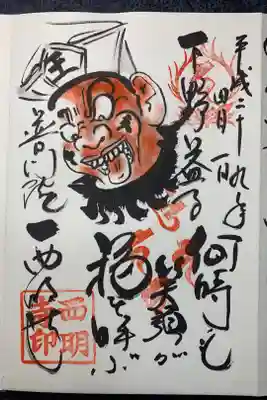 平成二十九年
四月一日
下野益子
何時も
笑顔が
福を呼ぶ
王
普門院 西明寺
西明
寺印